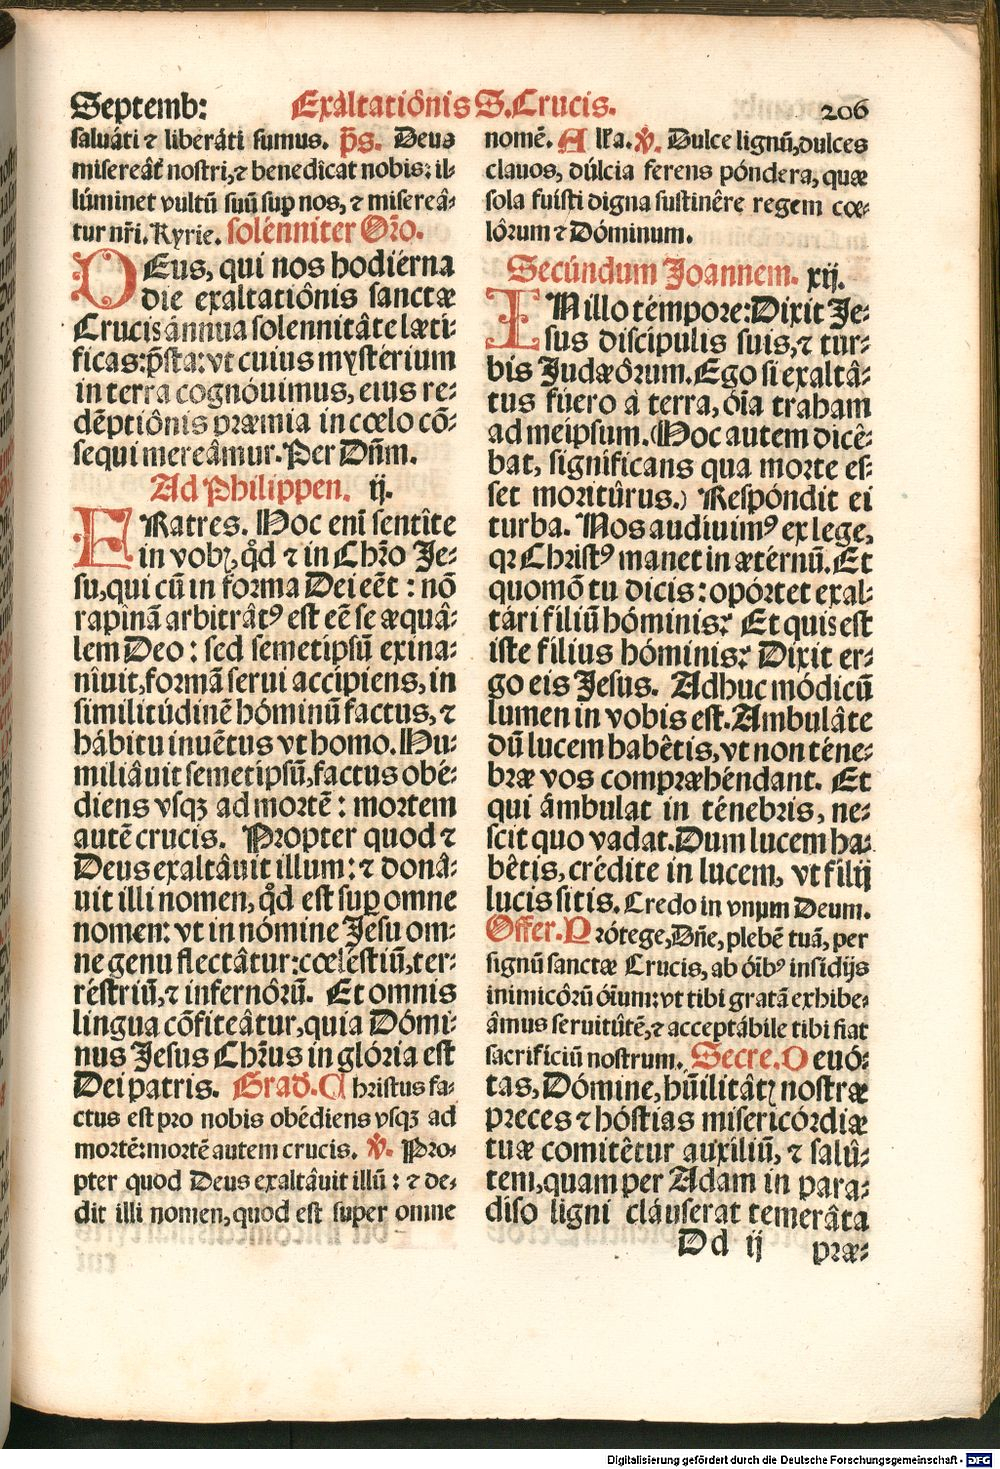 Septemb: Exàltatiônis S. Crucis. 206
saluáti ⁊ liberáti sumus. p̄s. Deus
misereat̃ nostri,⁊ benedîcat nobis: il⸗
lúminet vultũ suũ sup nos, ⁊ misereâ⸗
tur nr̃i. Kyrie. solénniter Or̃o.
DEus, qui nos hodiérna
die exaltatiônis sanctæ
Crucis ánnua solennitâte læti⸗
ficas: p̃sta: vt cuius mystérium
in terra cognóuimus, eius re⸗
dẽptiônis præmia in cœlo cõ⸗
sequi mereâmur. Per Dñm.
Ad Philippen. ij.
FRatres. Hoc enĩ sentîte
in vobꝭ, qđ ⁊ in Chr̃o Je⸗
su, qui cũ in forma Dei eẽt : nõ
rapînã arbitrâtꝰ est eẽ se æquâ⸗
lem Deo : sed semetipsũ exina⸗
nîuit, formã serui accípiens, in
similitúdinẽ hóminũ factus, ⁊
hábitu inuẽtus vt homo. Hu⸗
miliâuit semetipsũ, factus obé⸗
diens vsqꝫ ad mortẽ : mortem
autẽ crucis. Propter quod ⁊
Deus exaltâuit illum: ⁊ donâ⸗
uit illi nomen, qđ est sup omne
nomen: vt in nómine Jesu om⸗
ne genu flectâtur: cœléstiũ, ter⸗
réstriũ, ⁊ infernôrũ. Et omnis
lingua cõfiteâtur, quia Dómi⸗
nus Jesus Chr̃us in glória est
Dei patris. Grad̃. Christus fa⸗
ctus est pro nobis obédiens vsqꝫ ad
mortẽ: mortẽ autem crucis. ℣. Pro⸗
pter quod Deus exaltâuit illũ : ⁊ de⸗
dit illi nomen, quod est super omne
nomẽ. Alľa. ℣. Dulce lignũ, dulces
clauos, dúlcia ferens póndera, quæ
sola fuísti digna sustinêre regem cœ⸗
lôrum ⁊ Dóminum.
Secúndum Joannem. xij.
IN illo témpore: Dixit Je⸗
sus discípulis suis, ⁊ tur⸗
bis Judæôrum. Ego si exaltâ⸗
tus fúero à terra, óĩa traham
ad meípsum. (Hoc autem dicê⸗
bat, significans qua morte es⸗
set moritûrus.) Respóndit ei
turba. Nos audíuimꝰ ex lege,
qꝛ Christꝰ manet in ætérnũ. Et
quomõ tu dicis : opórtet exal⸗
tári filiũ hóminis? Et quis est
iste filius hóminis? Dixit er⸗
go eis Jesus. Adhuc módicũ
lumen in vobis est. Ambulâte
dũ lucem habêtis, vt non téne⸗
bræ vos compræhéndant. Et
qui ámbulat in ténebris, ne⸗
scit quo vadat. Dum lucem ha⸗
bêtis, crédite in lucem, vt filij
lucis sitis. Credo in vnum Deum.
Offer. Prótege, Dñe, plebẽ tuã, per
signũ sanctæ Crucis, ab óĩbꝰ insídijs
inimicôrũ óĩum: vt tibi gratã exhibe⸗
âmus seruitûtẽ, ⁊ acceptábile tibi fiat
sacrifíciũ nostrum. Secre. Deuó⸗
tas, Dómine, hũilitâtꝭ nostræ
preces ⁊ hóstias misericórdiæ
tuæ comitêtur auxiliũ, ⁊ salû⸗
tem, quam per Adam in para⸗
diso ligni cláuserat temerâta
Dd ij præ⸗
Digitalisierung gefördert durch die Deutsche Forschungsgemeinschaft - DFG